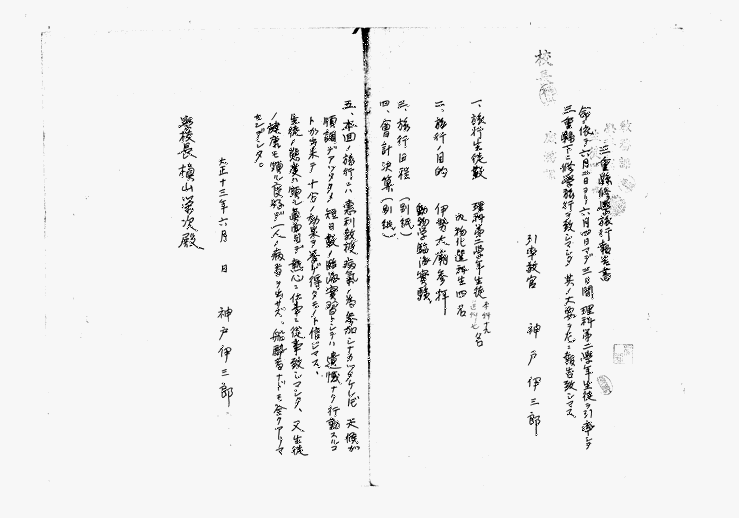 三重縣修學旅行報告書
命ニ依リ六月二日ヨリ六月四日マデ三日間理科第二學年生徒ヲ引率シテ
三重縣下ニ修學旅行ヲ致シマシタ 其ノ大要ヲ左ニ報告致シマス
引率教官 神戸伊三郎
一、旅行生徒數 理科第二學年生徒 名
内物化選科生四名
二、旅行ノ目的 伊勢大廟参拝
動物学臨海實驗
三、旅行日程(別紙)
四、會計決算(別紙)
五、本回ノ旅行ニハ 教授病氣ノ為参加シナカッタケレドモ 天候ガ
順調デアッタタメ 短日數ノ臨海實習トシテハ遺憾ナク行動スルコ
トガ出来テ十分ノ効果ヲ挙ゲ得タモノト信ジマス、
生徒ノ態度ハ頗ル真面目デ熱心ニ仕事ニ従事致シマシタ、又生徒
ノ健康モ頗ル良好デ一人ノ病者ヲ出サズ、船酔者ナドモ全クアリマ
センデシタ。
大正十三年六月 日 神戸伊三郎
學校長 槇山榮次殿